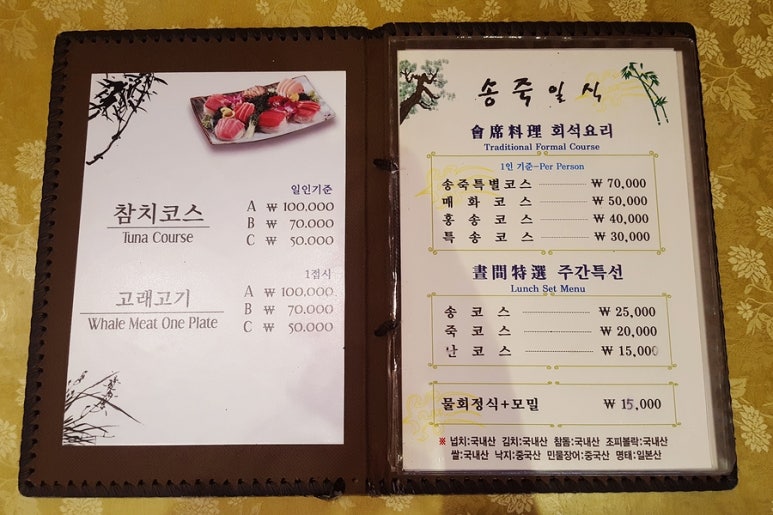 일인기준
참치코스
Tuna Course
A ₩ 100,000
B ₩ 70,000
C ₩ 50,000
1접시
고래고기
Whale Meat One Plate
A ₩ 100,000
B ₩ 70,000
C ₩ 50,000
송죽일식
會席料理 회석요리
Traditional Formal Course
1인 기준-Per Person
송죽특별코스 ₩ 70,000
매 화 코 스 ₩ 50,000
홍 송 코 스 ₩ 40,000
특 송 코 스 ₩ 30,000
晝間特選 주간특선
Lunch Set Menu
송 코 스 ₩ 25,000
죽 코 스 ₩ 20,000
난 코 스 ₩ 15,000
물회정식+모밀 ₩ 15,000
※ 넙치:국내산 김치:국내산 참돔:국내산 조피볼락:국내산
쌀:국내산 낙지:중국산 민물장어:중국산 명태:일본산